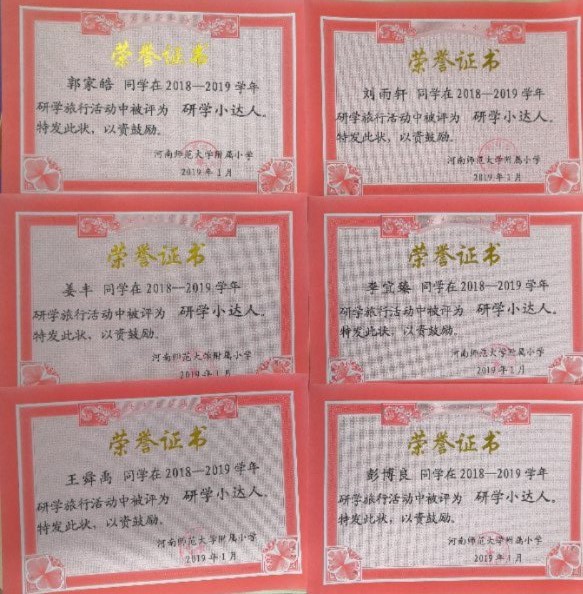 荣誉证书
郭家皓 同学在2018—2019学年
研学旅行活动中被评为 研学小达人。
特发此状，以资鼓励。
河南师范大学附属小学
2019年1月
荣誉证书
刘雨轩 同学在2018—2019学年
研学旅行活动中被评为 研学小达人。
特发此状，以资鼓励。
河南师范大学附属小学
2019年1月
荣誉证书
姜丰 同学在2018—2019学年
研学旅行活动中被评为 研学小达人。
特发此状，以资鼓励。
河南师范大学附属小学
2019年1月
荣誉证书
李宜臻 同学在2018—2019学年
研学旅行活动中被评为 研学小达人。
特发此状，以资鼓励。
河南师范大学附属小学
2019年1月
荣誉证书
王舜禹 同学在2018—2019学年
研学旅行活动中被评为 研学小达人。
特发此状，以资鼓励。
河南师范大学附属小学
2019年1月
荣誉证书
彭博良 同学在2018—2019学年
研学旅行活动中被评为 研学小达人。
特发此状，以资鼓励。
河南师范大学附属小学
2019年1月